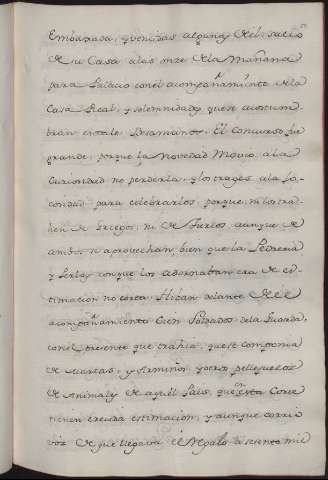 Embaxada, y vencidas algunas de el, salio
de su Casa a las onze de la Mañana
para Palacio con el acompañam.to de la
Casa Real, y solemnidades que se acostum
bran en tales Desempeños. El Concurso fue
grande, porque la Novedad Movio a la
Curiosidad no perderla, y los trages a la Jo
cosidad para celebrarlos, porque ni los tra
hen de Griegos, ni de Turcos, aunque de
ambos se aprovechan, bien que la Pedreria
y Perlas con que los adornaban era de es
timacion no corta. Hizan delante de el
acompañamiento Cien Soldados de la Guardia,
con el presente que trahia, que se componia
de Martas, y Arminios y otros pellejuelos
de Animales de aquel Pais, que en esta Corte
tienen crecida estimacion, y aunque corrio
voz de que llegava el Regalo a sesenta mil